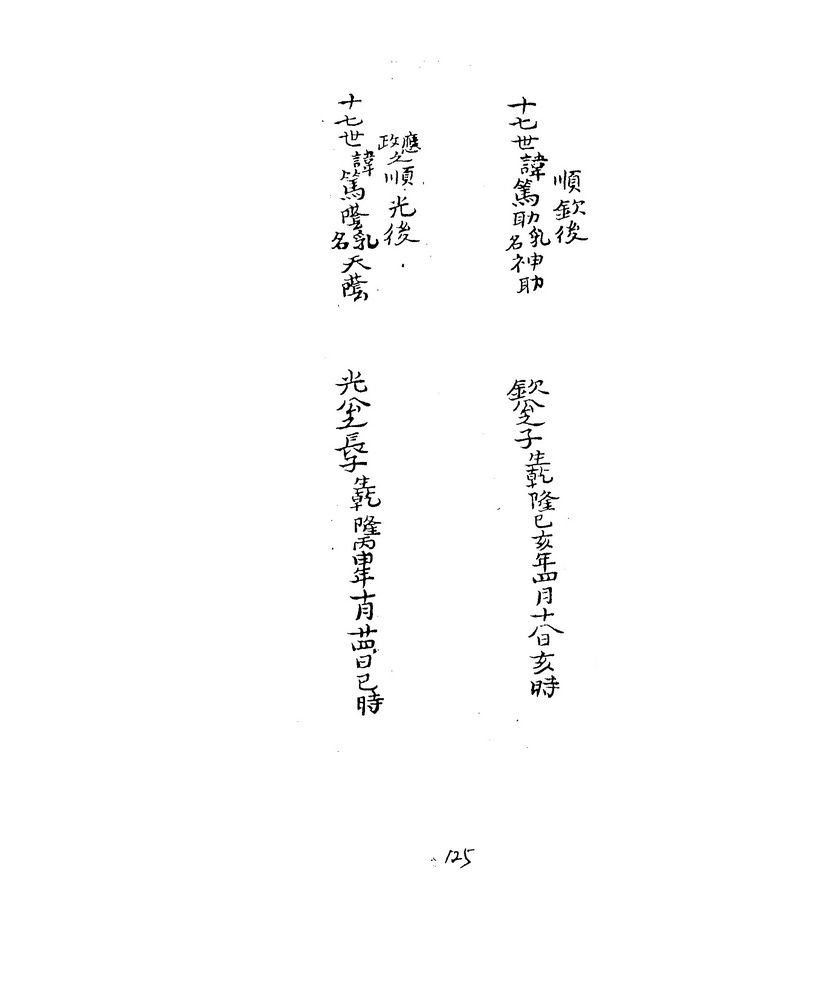 順欽後
十七世諱篤助乳名神助
欽公之子生乾隆己亥年四月十八日亥時
應政之順光後
十七世諱篤蔭乳名天蔭
光公之長子生乾隆丙申年十月廿四日巳時
125